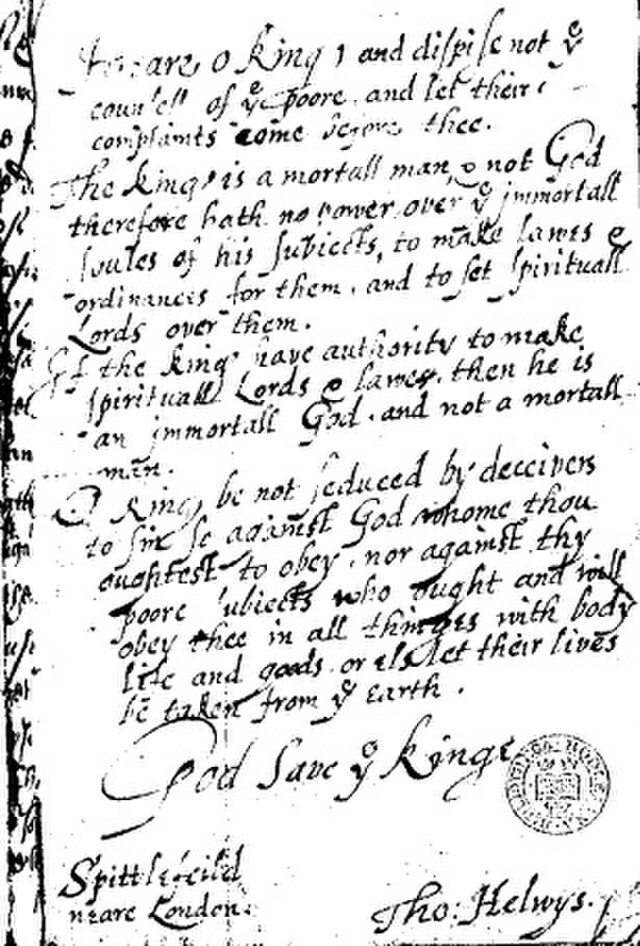 Heare O King, and dispise not yͤ
counsell of yͤ poore, and let their
complaints come before thee.
The King is a mortall man, & not God
therefore hath no power over yͤ immortall
soules of his subiects, to make lawes &
ordinances for them, and to set spirituall
Lords over them.
If the King have authority to make
spirituall Lords & lawes, then he is
an immortall God, and not a mortall
man.
O King, be not seduced by deceivers
to sin so against God whome thou
oughtest to obey, nor against thy
poore subiects who ought and will
obey thee in all thinges with body
life and goods, or els let their lives
be taken from yͤ earth.
God Save yͤ Kinge
Spittlefeild
neare London.
Tho: Helwys.